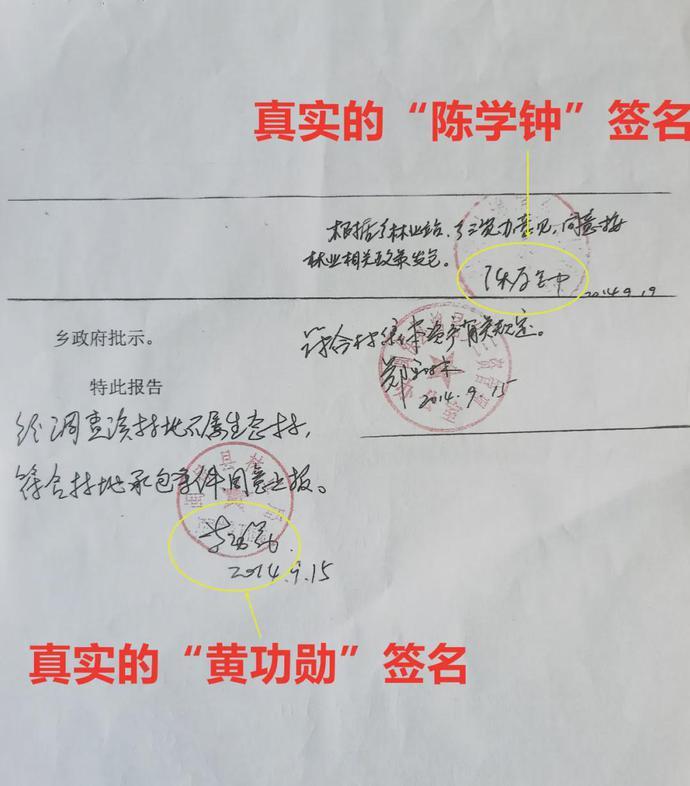 真实的“陈学钟”签名
根据乡林业站、乡三资办意见,同意按
林业相关政策发包。
陈学钟
2014.9.19
乡政府批示。
符合村集体资产有关规定。
2014.9.15
特此报告
经调查该林地不属生态林,
符合林地承包条件同意上报。
2014.9.15
真实的“黄功勋”签名